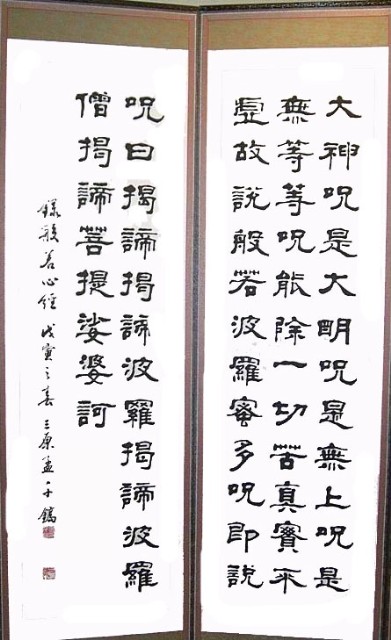 大神呪是大明呪是無上呪是
無等等呪能除一切苦真實不
虛故說般若波羅蜜多呪即說
呪曰揭諦揭諦波羅揭諦波羅
僧揭諦菩提娑婆訶
錄般若心經 戊寅之春 三原孟千鎬